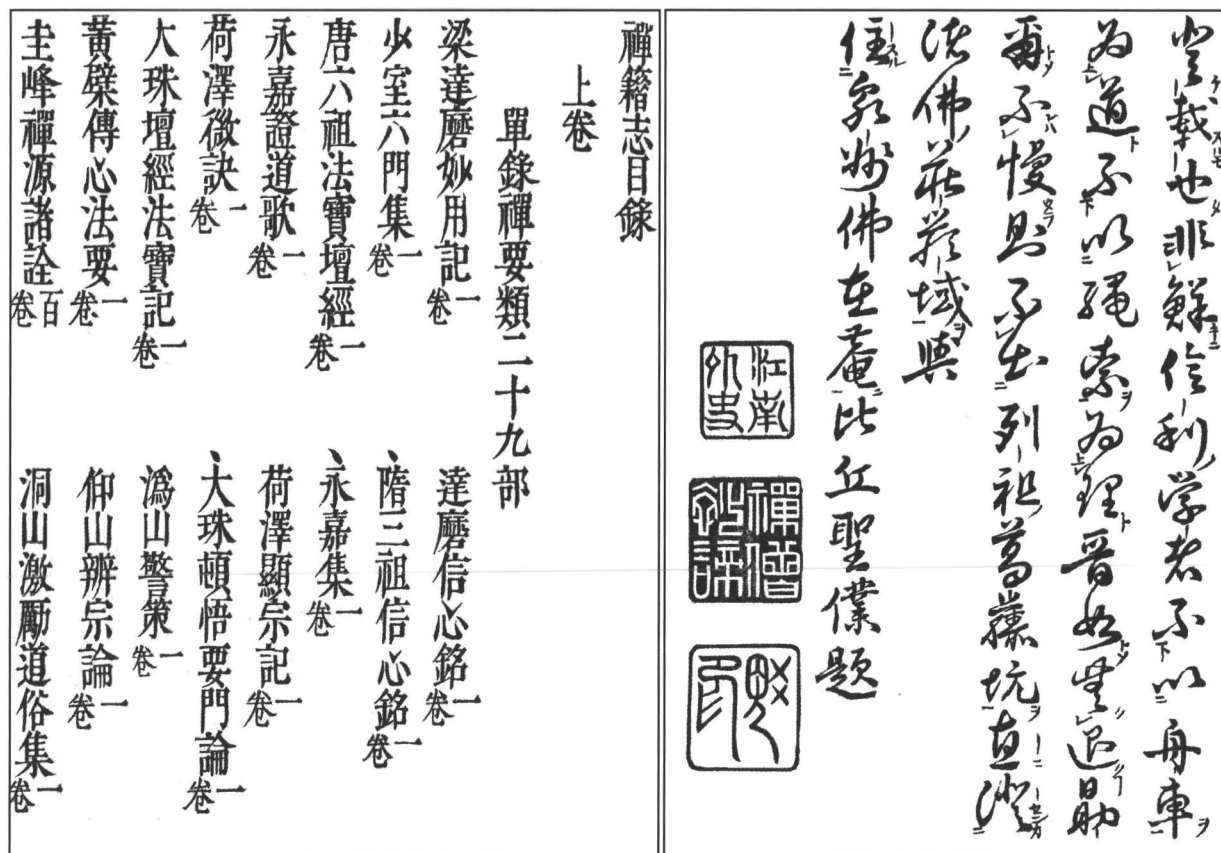 登載也非鮮信利學者不以舟車
為道不以繩索為理晉如無退
爾不慢則不出列祖葛藤坑直證
諸佛莊嚴域與
住泉州佛在菴比丘聖僕題
江南外史
禪籍志目錄
上卷
單錄禪要類二十九部
梁達磨妙用記一卷 達磨信心銘一卷
少室六門集一卷 隋三祖信心銘一卷
唐六祖法寶壇經一卷 永嘉集一卷
永嘉證道歌一卷 荷澤顯宗記一卷
荷澤微訣一卷 大珠頓悟要門論一卷
大珠壇經法寶記一卷 溈山警策一卷
黃檗傳心法要一卷 仰山辨宗論一卷
圭峰禪源諸詮百卷 洞山激勵道俗集一卷